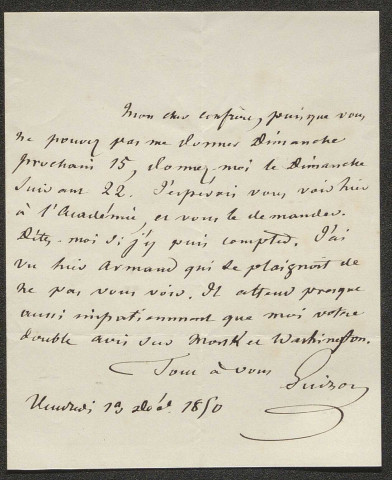 Mon cher confrère, puisque vous
ne pouvez pas me donner Dimanche
prochain 15, donnez-moi le Dimanche
suivant 22. J'espérais vous voir hier
à l'Académie, et vous le demander.
Dites-moi si j'y puis compter. J'ai
vu hier Armand qui se plaignait de
ne pas vous voir. Il attend presque
aussi impatiemment que moi votre
double avis sur Monk et Washington.
Tout à vous
Guizot
Vendredi 13 Déc. 1850